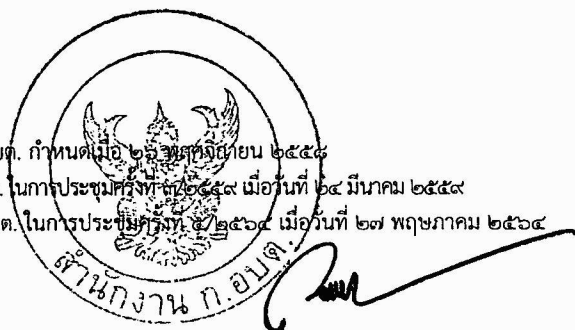 บต. กำหนดเมื่อ ๒๖ พฤศจิกายน ๒๕๕๘
. ในการประชุมครั้งที่ ๓/๒๕๕๙ เมื่อวันที่ ๒๔ มีนาคม ๒๕๕๙
ต. ในการประชุมครั้งที่ ๕/๒๕๖๔ เมื่อวันที่ ๒๗ พฤษภาคม ๒๕๖๔
สำนักงาน ก.อบต.